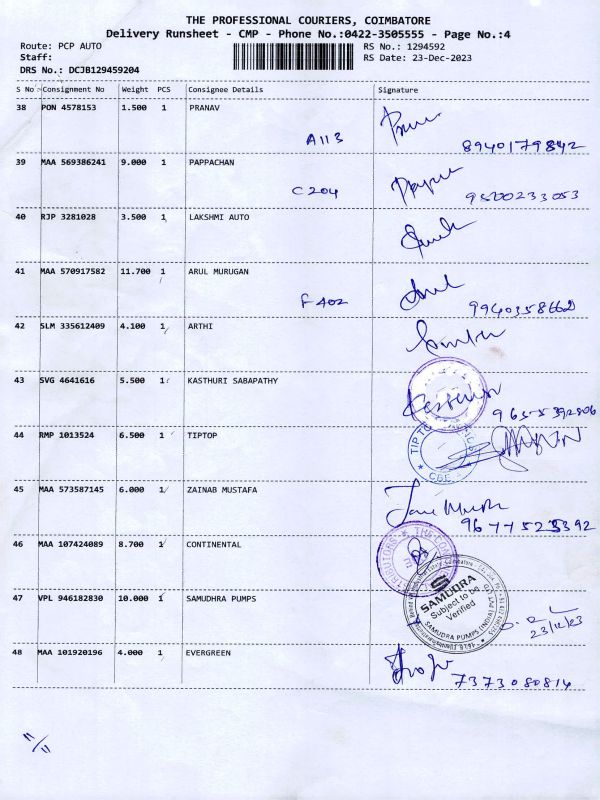 THE PROFESSIONAL COURIERS, COIMBATORE
Delivery Runsheet - CMP - Phone No.:0422-3505555 - Page No.:4
Route: PCP AUTO RS No.: 1294592
Staff: RS Date: 23-Dec-2023
DRS No.: DCJB129459204
S No Consignment No Weight PCS Consignee Details Signature
38 PON 4578153 1.500 1 PRANAV
A113 8940179842
39 MAA 569386241 9.000 1 PAPPACHAN
C204 9500233053
40 RJP 3281028 3.500 1 LAKSHMI AUTO
41 MAA 570917582 11.700 1 ARUL MURUGAN
F402
42 SLM 335612409 4.100 1 ARTHI
43 SVG 4641616 5.500 1 KASTHURI SABAPATHY
44 RMP 1013524 6.500 1 TIPTOP
CBE
45 MAA 573587145 6.000 1 ZAINAB MUSTAFA
46 MAA 107424089 8.700 1 CONTINENTAL
47 VPL 946182830 10.000 1 SAMUDHRA PUMPS
SAMUDRA
Subject to be
Verified
SAMUDRA PUMPS (INDIA)
23/12/23
48 MAA 101920196 4.000 1 EVERGREEN
7373080814
11/11